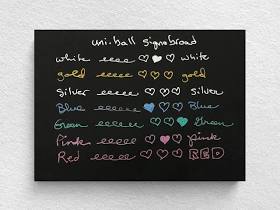 uni-ball signo broad
white eeeee ♡♥♡ white
gold eeeee ♡♡♡ gold
Silver eeeee ♡♡♡ silver
Blue eeeee ♥♡♡ Blue
Green eeeee ♡♡♥ Green
Pink eeeee ♡♥♡ pink
Red eeeee ♡♡♡ RED